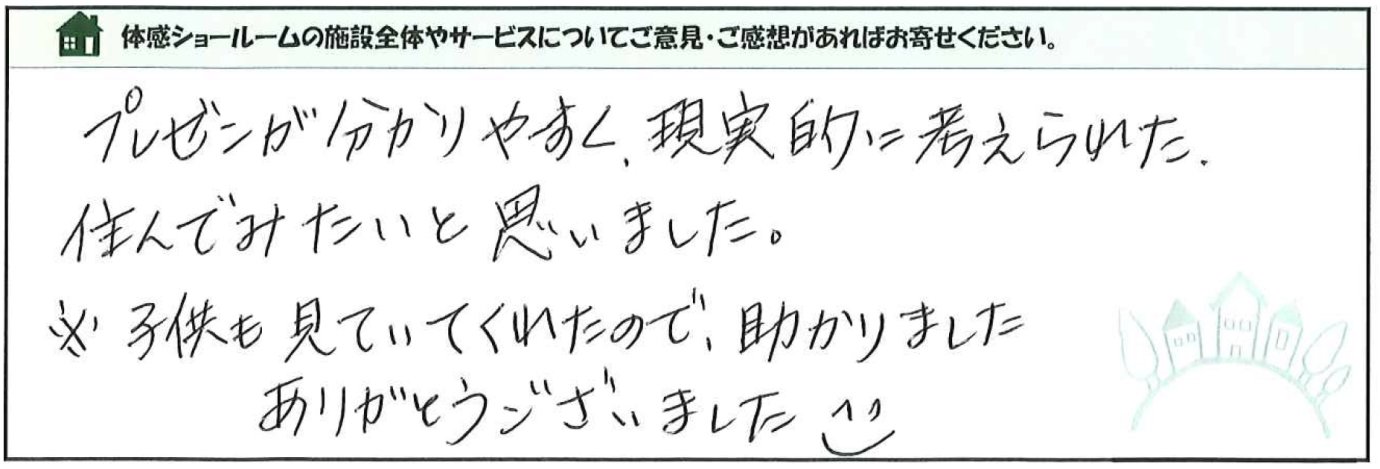 体感ショールームの施設全体やサービスについてご意見・ご感想があればお寄せください。
プレゼンが分かりやすく、現実的に考えられた.
住んでみたいと思いました。
※ 子供も見ていてくれたので、助かりました
ありがとうございました